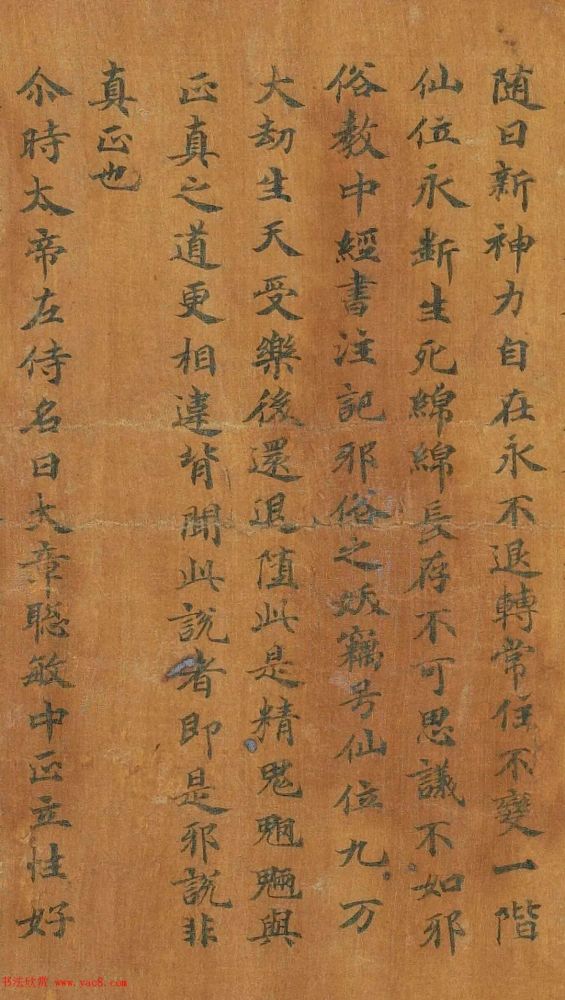 随日新神力自在永不退轉常住不變一階
仙位永斷生死綿綿長存不可思議不如邪
俗教中經書注記邪俗之妖竊号仙位九万
大劫生天受樂後還退墮此是精鬼魍魎與
正真之道更相違背聞此說者即是邪說非
真正也
尒時太帝左侍名曰大章聡敏中正立性好
书法欣赏 www.yac8.com